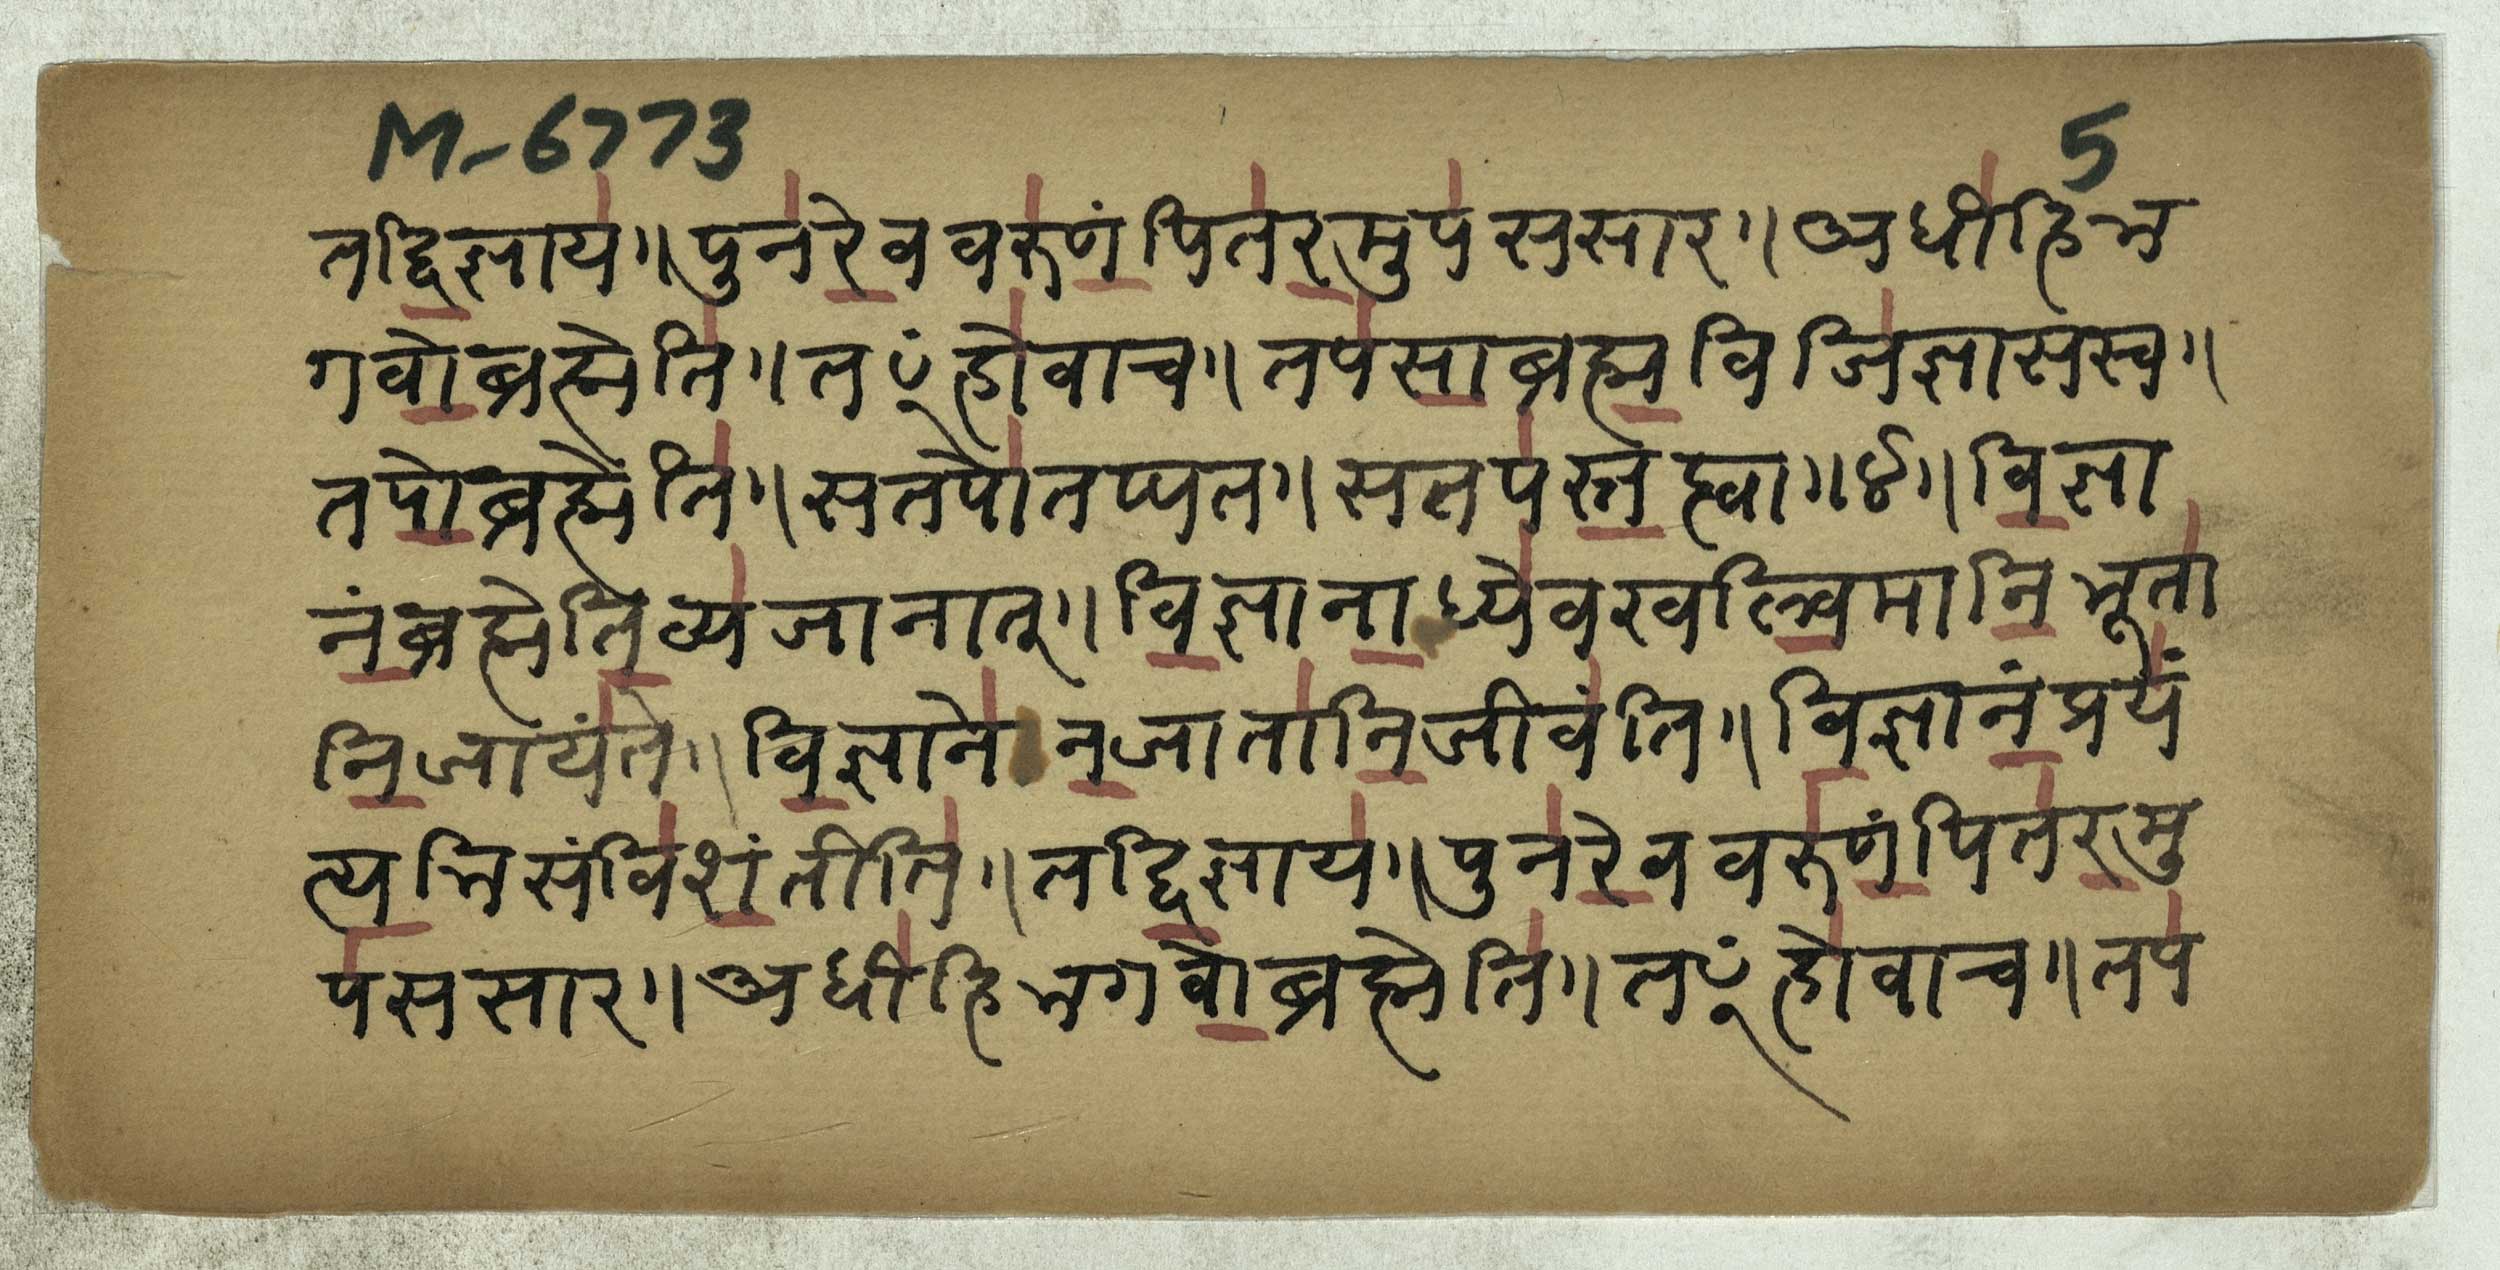 M-6773 5
तद्वि॒ज्ञाय॑॥पुन॑रे॒ववरु॑णं॒पित॑र॒मुप॑ससार॥अधी॑हिभ
गवो॒ब्रह्मेति॑॥तꣳहो॑वाच॥तप॑सा॒ब्रह्म॒विजि॑ज्ञासस्व॥
तपो॒ब्रह्मेति॑॥सतपो॑तप्यत॥सतप॑स्त॒प्त्वा॥४॥वि॒ज्ञा
नं॒ब्रह्मेति॒व्य॑जानात्॥वि॒ज्ञाना॒ध्ये॑वखल्वि॒मानि॒भूता॑
नि॒जायं॑ते॥वि॒ज्ञाने॑न॒जाता॑नि॒जीवं॑ति॥वि॒ज्ञानं॒प्रयं॑
त्य॒भिसंवि॑शं॒तीति॑॥तद्वि॒ज्ञाय॑॥पुन॑रे॒ववरु॑णं॒पित॑र॒मु
प॑ससार॥अधी॑हिभगवो॒ब्रह्मेति॑॥तꣳहो॑वाच॥तप॑